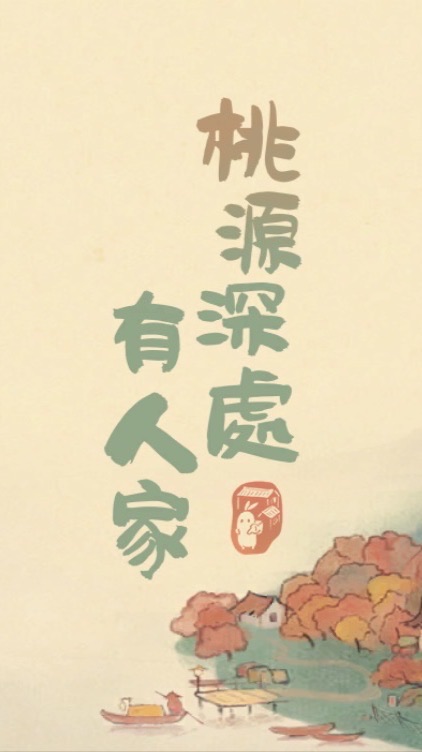 桃源深處
有人家